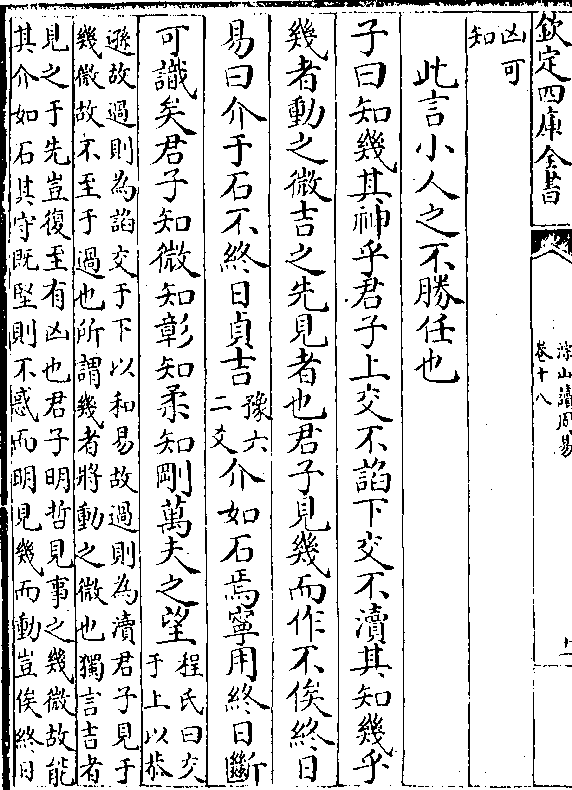 欽定四庫全書
淙山讀周易
卷十八
凶可
知
此言小人之不勝任也
子曰知幾其神乎君子上交不諂下交不瀆其知幾乎
幾者動之微吉之先見者也君子見幾而作不俟終日
易曰介于石不終日貞吉
豫六
二爻
介如石焉寧用終日斷
可識矣君子知微知彰知柔知剛萬夫之望
程氏曰交
于上以恭
遜故過則為諂交于下以和易故過則為瀆君子見于
幾微故不至于過也所謂幾者將動之微也獨言吉者
見之于先豈復至有凶也君子明哲見事之幾微故能
其介如石其守既堅則不惑而明見幾而動豈俟終日